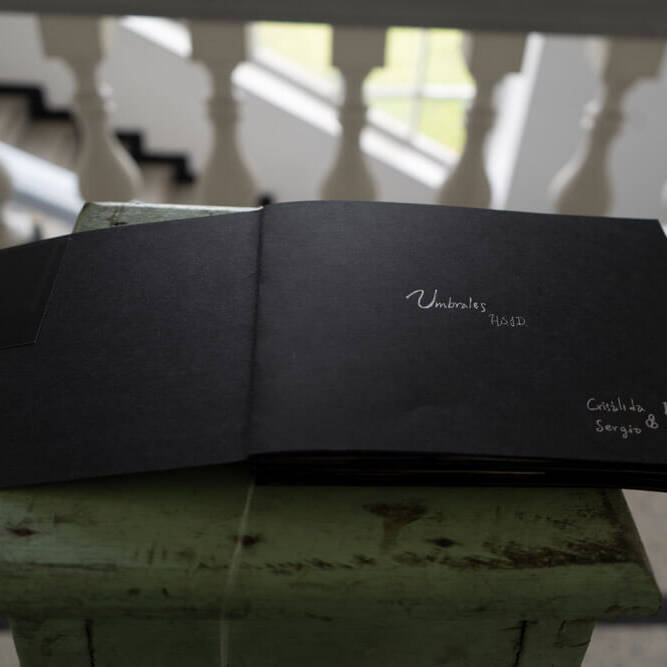 Umbrales
Crisálida
Sergio &